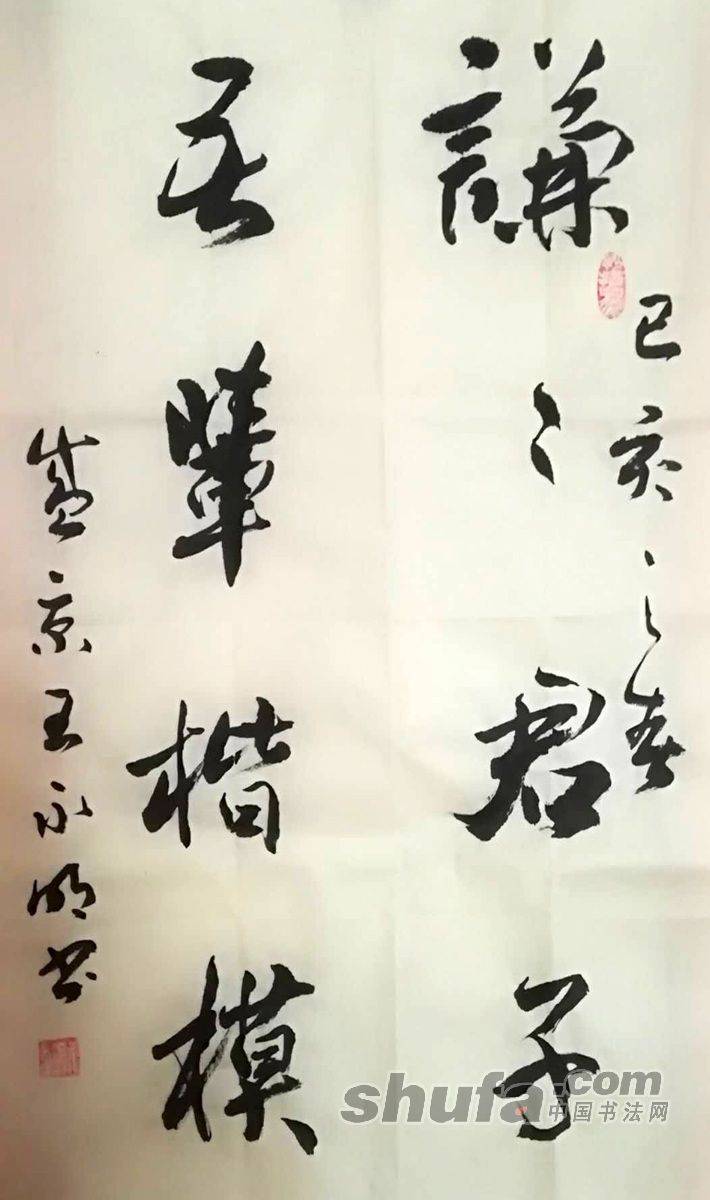 謙〻君子
己亥之春
吾輩楷模
盛京王永明书
shufa.com
中国书法网